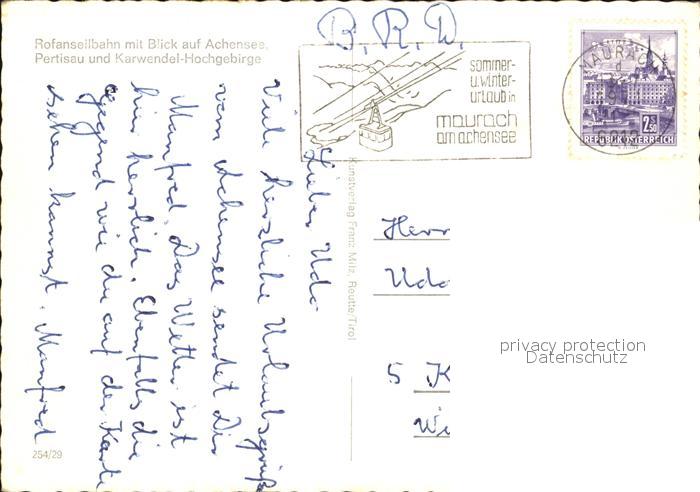 Rofanseilbahn mit Blick auf Achensee,
Pertisau und Karwendel-Hochgebirge
B.R.D.
sommer-
u.winter-
urlaub in
maurach
am achensee
MAURACH
2,50
REPUBLIK ÖSTERREICH
Lieber Udo
Viele herzliche Urlaubsgrüße
vom Achensee sendet Dir
Manfred. Das Wetter ist
hier herrlich. Ebenfalls die
Gegend wie du auf der Karte
sehen kannst. Manfred
Kunstverlag Franz Milz, Reutte/Tirol
Herr
Udo
5 K
Wi
privacy protection
Datenschutz
254/29